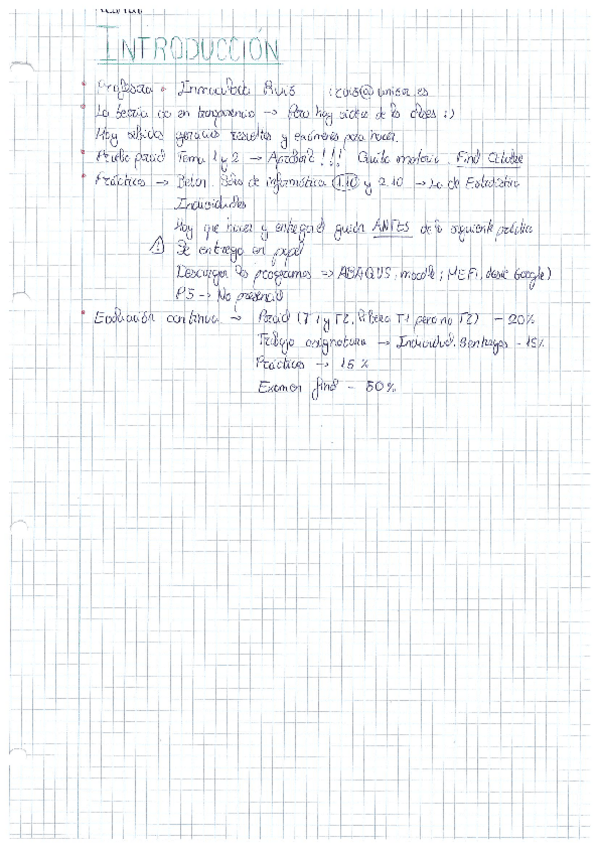 INTRODUCCIÓN
Profesora: Inmaculada Ruis iruis@unizar.es
La teoría va en transparencias → Pero hay vídeos de las clases :)
Hay subidos ejercicios resueltos y exámenes para hacer.
Prueba parcial Tema 1 y 2 → Aprobar!!! Quita materia. Final Octubre
Prácticas → Betan. Sala de informática 1.10 y 2.10 → La de Estadística
Individuales
Hay que hacer y entregar el guión ANTES de la siguiente práctica
Se entrega en papel
Descargar los programas → ABAQUS, moodle; MEFI, desde Google)
P5 → No presencial
Evaluación continua → Parcial (T1 y T2, libera T1 pero no T2) - 20%
Trabajo asignatura → Individual. 3 entregas - 15%
Prácticas → 15%
Examen final - 50%